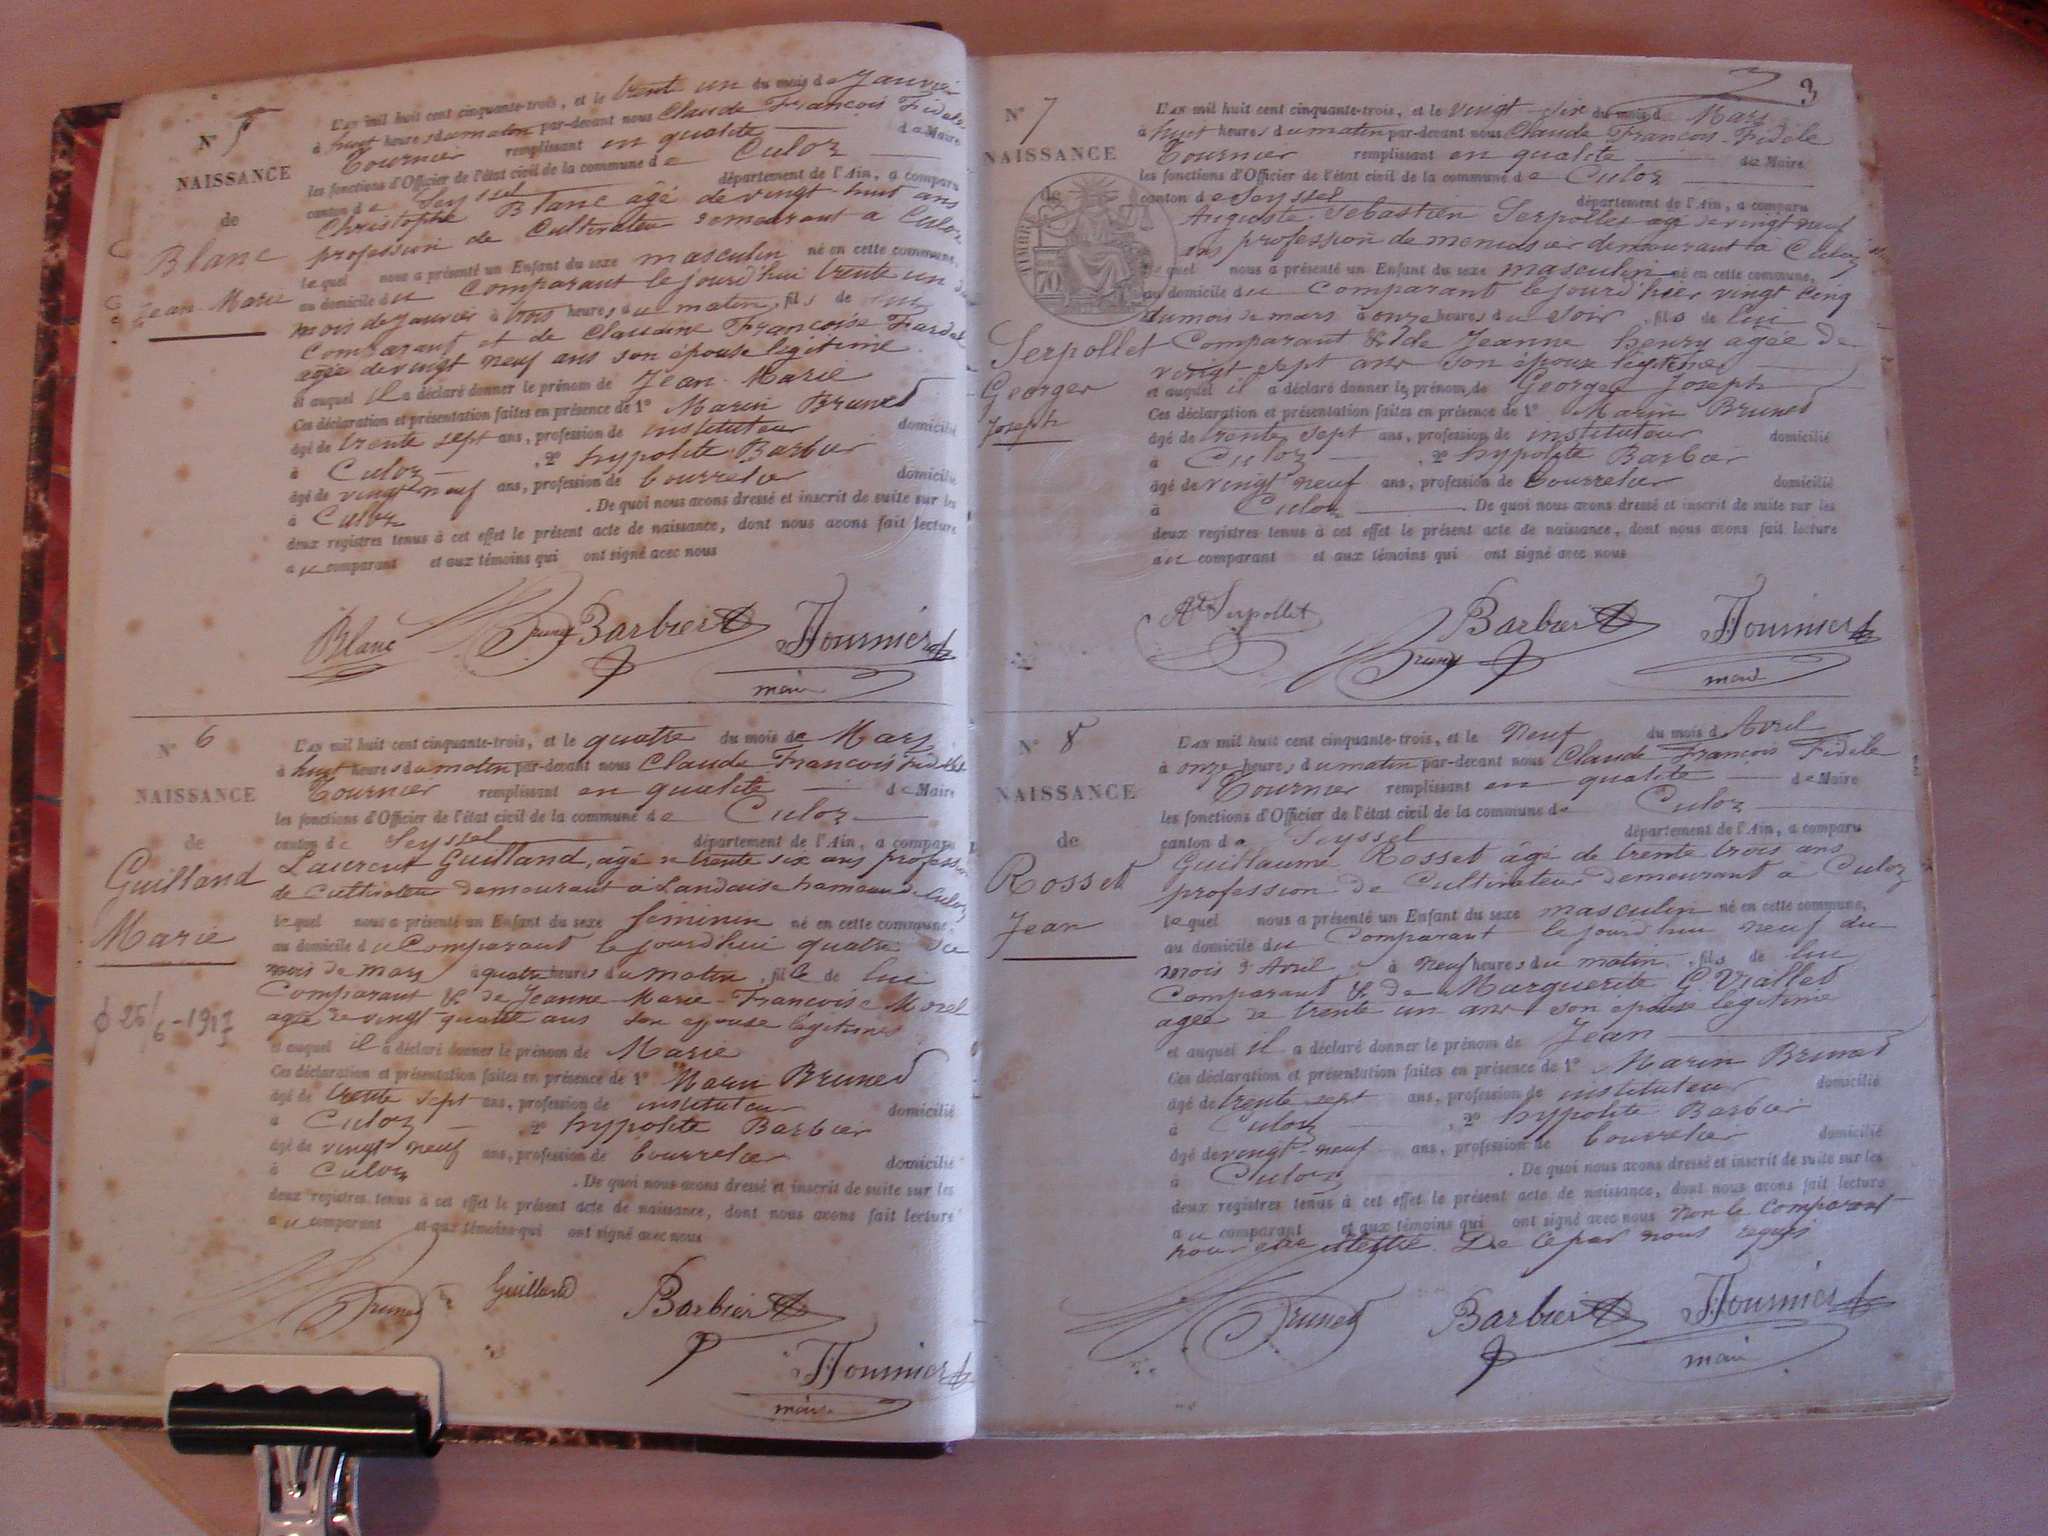 N° 5
NAISSANCE
de
Blanc
Jean-Marie
L'AN mil huit cent cinquante-trois, et le trente un du mois de Janvier
à huit heures du matin par-devant nous Claude François Fidèle
Tournier remplissant en qualité de Maire
les fonctions d'Officier de l'état civil de la commune de Culoz
canton de Seyssel département de l'Ain, a comparu
Christophe Blanc âgé de vingt-huit ans
profession de Cultivateur demeurant à Culoz
lequel nous a présenté un Enfant du sexe masculin né en cette commune,
au domicile du Comparant le jourd'hui trente un du
mois de Janvier à trois heures du matin, fils de lui
Comparant et de Claudine Françoise Fardel
agée de vingt neuf ans son épouse légitime
et auquel il a déclaré donner le prénom de Jean-Marie
Ces déclaration et présentation faites en présence de 1° Marin Brunet
âgé de trente sept ans, profession de instituteur domicilié
à Culoz , 2° hypolite Barbier
âgé de vingt neuf ans, profession de bourrelier domicilié
à Culoz . De quoi nous avons dressé et inscrit de suite sur les
deux registres tenus à cet effet le présent acte de naissance, dont nous avons fait lecture
au comparant et aux témoins qui ont signé avec nous
Blanc Brunet Barbier Tournier
maire
N° 6
NAISSANCE
de
Guilland
Marie
L'AN mil huit cent cinquante-trois, et le quatre du mois de Mars
à huit heures du matin par-devant nous Claude François Fidèle
Tournier remplissant en qualité de Maire
les fonctions d'Officier de l'état civil de la commune de Culoz
canton de Seyssel département de l'Ain, a comparu
Laurent Guilland, âgé de trente six ans profession
de Cultivateur demeurant à Landaise hameau de Culoz
lequel nous a présenté un Enfant du sexe féminin né en cette commune,
au domicile du Comparant le jourd'hui quatre du
mois de mars à quatre heures du matin, fille de lui
Comparant & de Jeanne-Marie-Françoise Morel
agée de vingt-quatre ans son épouse légitime
et auquel il a déclaré donner le prénom de Marie
Ces déclaration et présentation faites en présence de 1° Marin Brunet
âgé de trente sept ans, profession de instituteur domicilié
à Culoz 2° hypolite Barbier
âgé de vingt neuf ans, profession de bourrelier domicilié
à Culoz . De quoi nous avons dressé et inscrit de suite sur les
deux registres tenus à cet effet le présent acte de naissance, dont nous avons fait lecture
au comparant et aux témoins qui ont signé avec nous
Brunet Guilland Barbier
Tournier
maire
3
N° 7
NAISSANCE
de
TIMBRE
Serpollet
Georges
Joseph
L'AN mil huit cent cinquante-trois, et le vingt-six du mois d Mars
à huit heures du matin par-devant nous Claude François-Fidèle
Tournier remplissant en qualité de Maire
les fonctions d'Officier de l'état civil de la commune de Culoz
canton de Seyssel département de l'Ain, a comparu
Auguste Sébastien Serpollet agé de vingt neuf
ans profession de menuisier demeurant à Culoz
lequel nous a présenté un Enfant du sexe masculin né en cette commune,
au domicile du Comparant le jourd'hier vingt cinq
du mois de mars à onze heures du soir, fils de lui
Comparant & de Jeanne henry agée de
vingt sept ans son épouse légitime
et auquel il a déclaré donner les prénom de Georges Joseph
Ces déclaration et présentation faites en présence de 1° Marin Brunet
âgé de trente sept ans, profession de instituteur domicilié
à Culoz , 2° hypolite Barbier
âgé de vingt neuf ans, profession de bourrelier domicilié
à Culoz . De quoi nous avons dressé et inscrit de suite sur les
deux registres tenus à cet effet le présent acte de naissance, dont nous avons fait lecture
au comparant et aux témoins qui ont signé avec nous
Serpollet Brunet Barbier Tournier
maire
N° 8
NAISSANCE
de
Rosset
Jean
L'AN mil huit cent cinquante-trois, et le Neuf du mois d Avril
à onze heures du matin par-devant nous Claude François Fidèle
Tournier remplissant en qualité de Maire
les fonctions d'Officier de l'état civil de la commune de Culoz
canton de Seyssel département de l'Ain, a comparu
Guillaume Rosset âgé de trente trois ans
profession de Cultivateur demeurant à Culoz
lequel nous a présenté un Enfant du sexe masculin né en cette commune,
au domicile du Comparant le jourd'hui neuf du
mois d'Avril à Neuf heures du matin, fils de lui
Comparant & de Marguerite G. Viallet
agée de trente un ans son épouse légitime
et auquel il a déclaré donner le prénom de Jean
Ces déclaration et présentation faites en présence de 1° Marin Brunet
âgé de trente-sept ans, profession de instituteur domicilié
à Culoz , 2° hypolite Barbier
âgé de vingt-neuf ans, profession de bourrelier domicilié
à Culoz . De quoi nous avons dressé et inscrit de suite sur les
deux registres tenus à cet effet le présent acte de naissance, dont nous avons fait lecture
au comparant et aux témoins qui ont signé avec nous non le Comparant
pour être illettré. De ce par nous requis
Brunet Barbier Tournier
maire